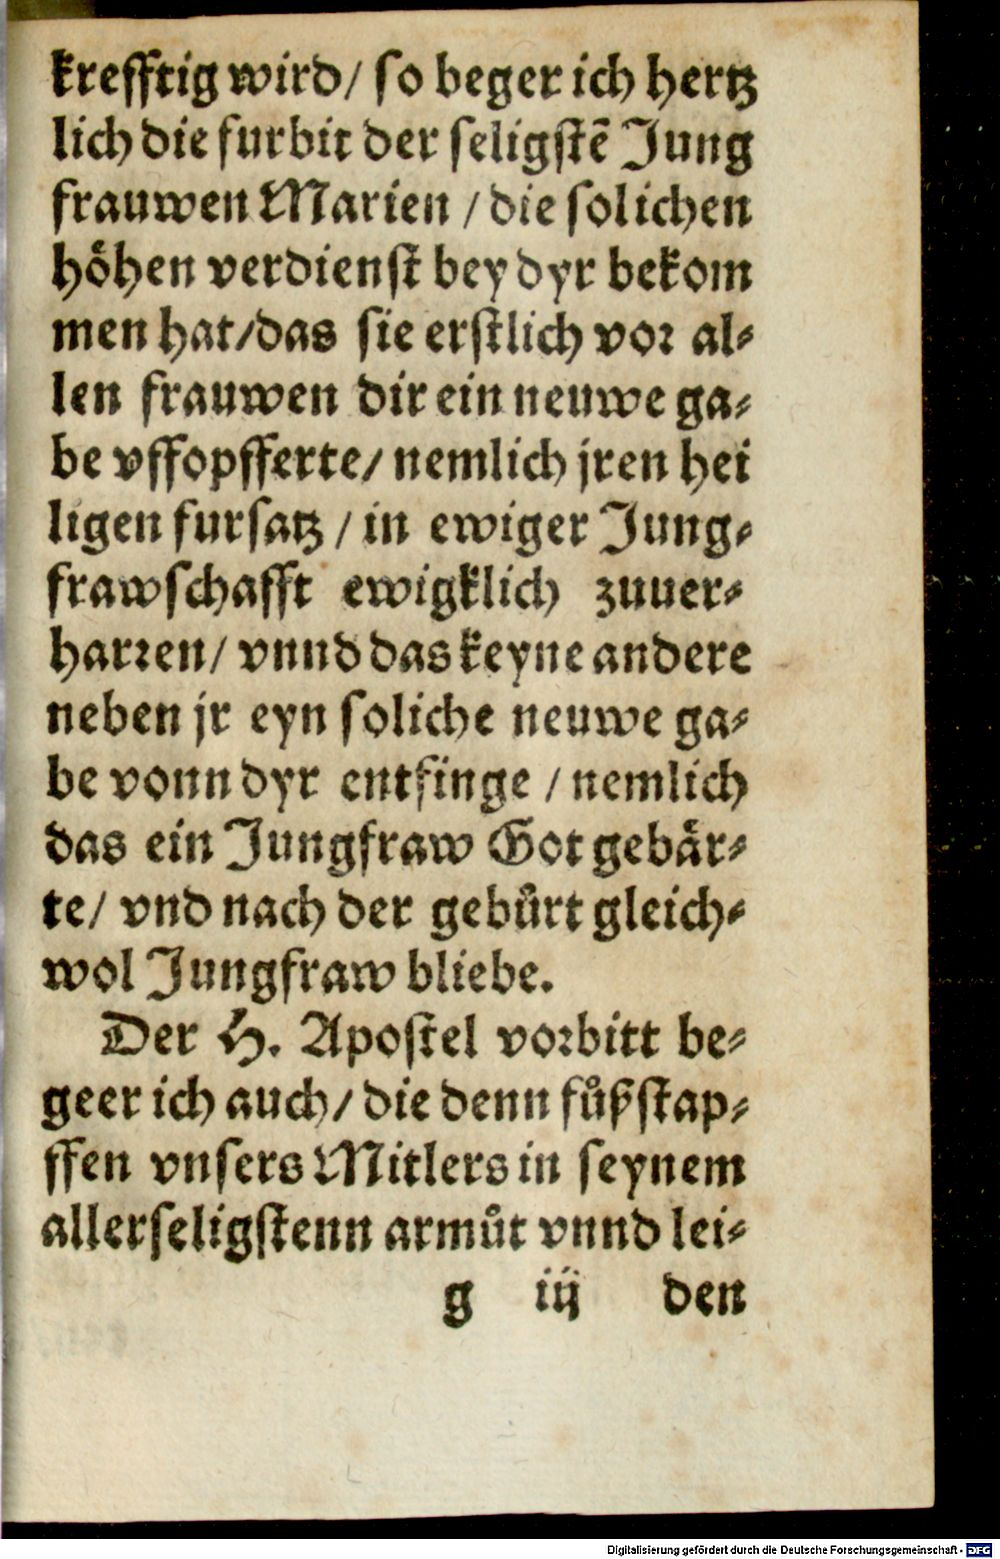 krefftig wird/ so beger ich hertz
lich die furbit der seligstē Jung
frauwen Marien / die solichen
hoͤhen verdienst bey dyr bekom
men hat/das sie erstlich vor al⸗
len frauwen dir ein neuwe ga⸗
be vffopfferte/ nemlich jren hei
ligen fursatz / in ewiger Jung⸗
frawschafft ewigklich zuuer⸗
harren/ vnnd das keyne andere
neben jr eyn soliche neuwe ga⸗
be vonn dyr entfinge / nemlich
das ein Jungfraw Got gebaͤr⸗
te/ vnd nach der gebuͤrt gleich⸗
wol Jungfraw bliebe.
Der H. Apostel vorbitt be⸗
geer ich auch/ die denn fůßstap⸗
ffen vnsers Mitlers in seynem
allerseligstenn armůt vnnd lei⸗
g iij den
Digitalisierung gefördert durch die Deutsche Forschungsgemeinschaft - DFG